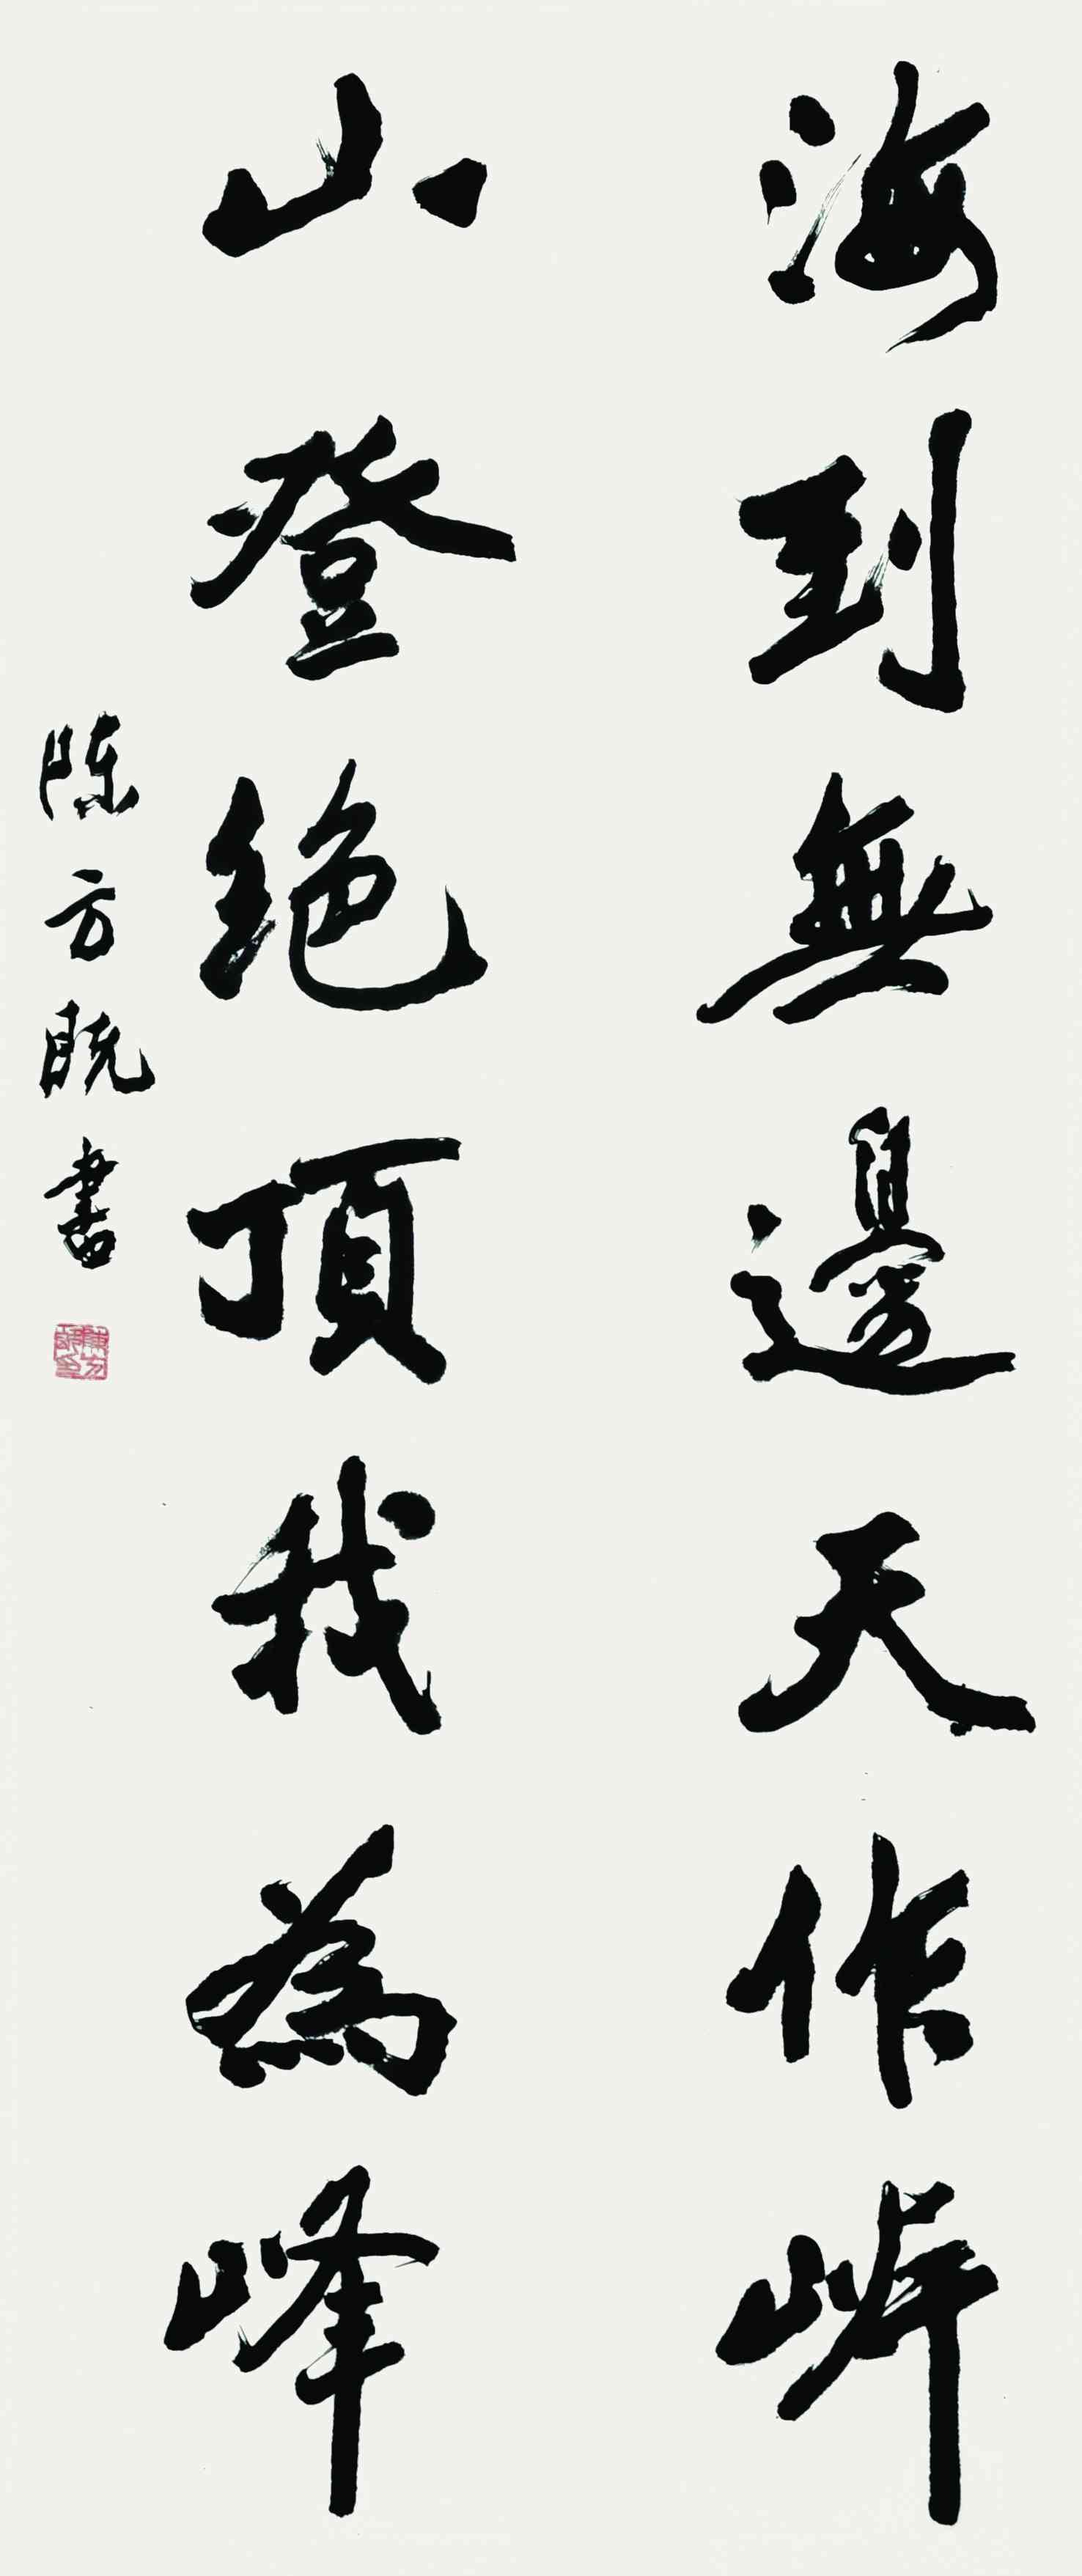 海到無邊天作岸
山登絕頂我為峰
陈方既書